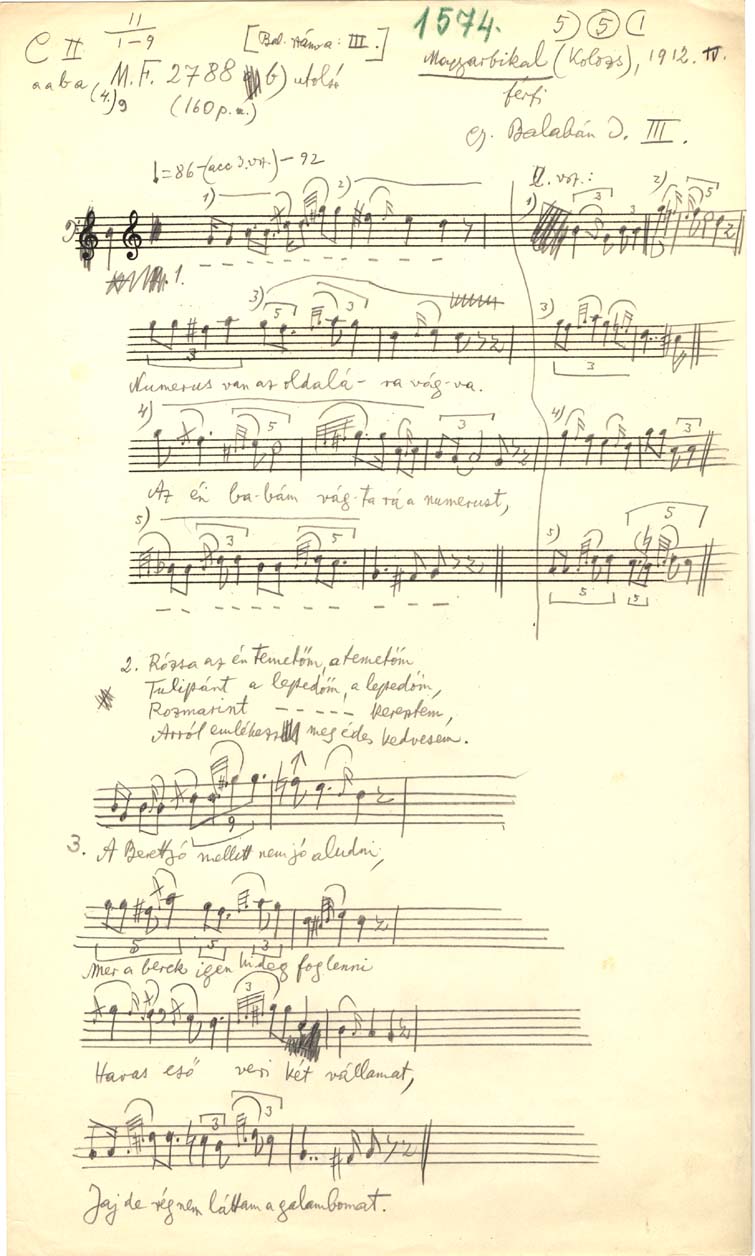 C II 11/1-9 [Bal. száma: III.] 1574. 5) (5) (1
aaba (4.)9 M.F. 2788 b) utolsó Magyarbikal (Kolozs), 1912. IV.
(160 p.u.) férfi
Balabán I. III.
♩=86-(acc 3. vsz.) - 92
1) 2) II. vsz.: 1) 3 2) 5
1.
3) 5 3 3)
3 3
Numerus van az oldalá - ra vág-va.
4) 5 3 4) 3
Az én ba-bám vág-ta rá a numerust,
5) 3 5 5) 5
5 5
2. Rózsa az én temetőm, a temetőm
Tulipánt a lepedőm, a lepedőm,
Rozmarint - - - - - keresztem,
Arról emlékezz meg édes kedvesem.
9
3. A Berettjó mellett nem jó aludni,
5 5 3
Mer a berek igen hideg foglenni
3
Havas eső veri két vállamat,
3 3
Jaj de rég nem láttam a galambomat.